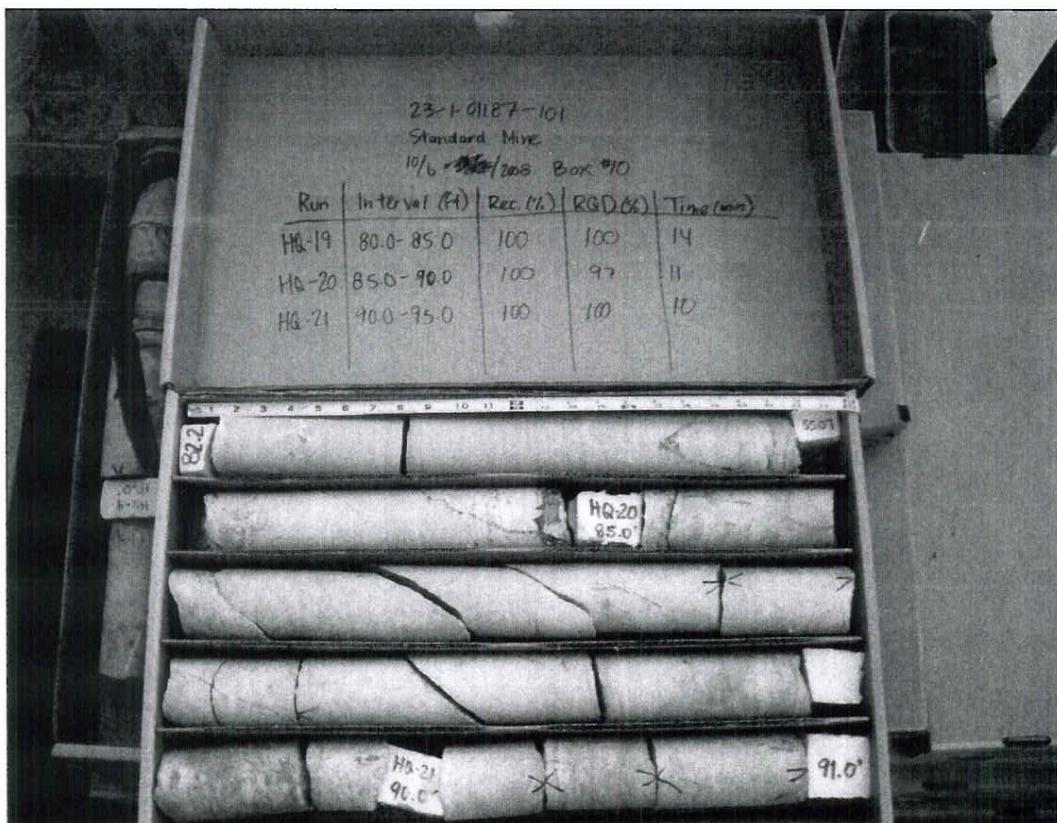 23-1-01187-101
Standard Mine
10/6 /2008 Box #10
Run Interval (ft) Rec. (%) RQD (%) Time (min)
HQ-19 80.0-85.0 100 100 14
HQ-20 85.0-90.0 100 97 11
HQ-21 90.0-95.0 100 100 10
1 2 3 4 5 6 7 8 9 10 11
82.2
HQ-20
85.0'
HQ-21
90.0'
91.0'